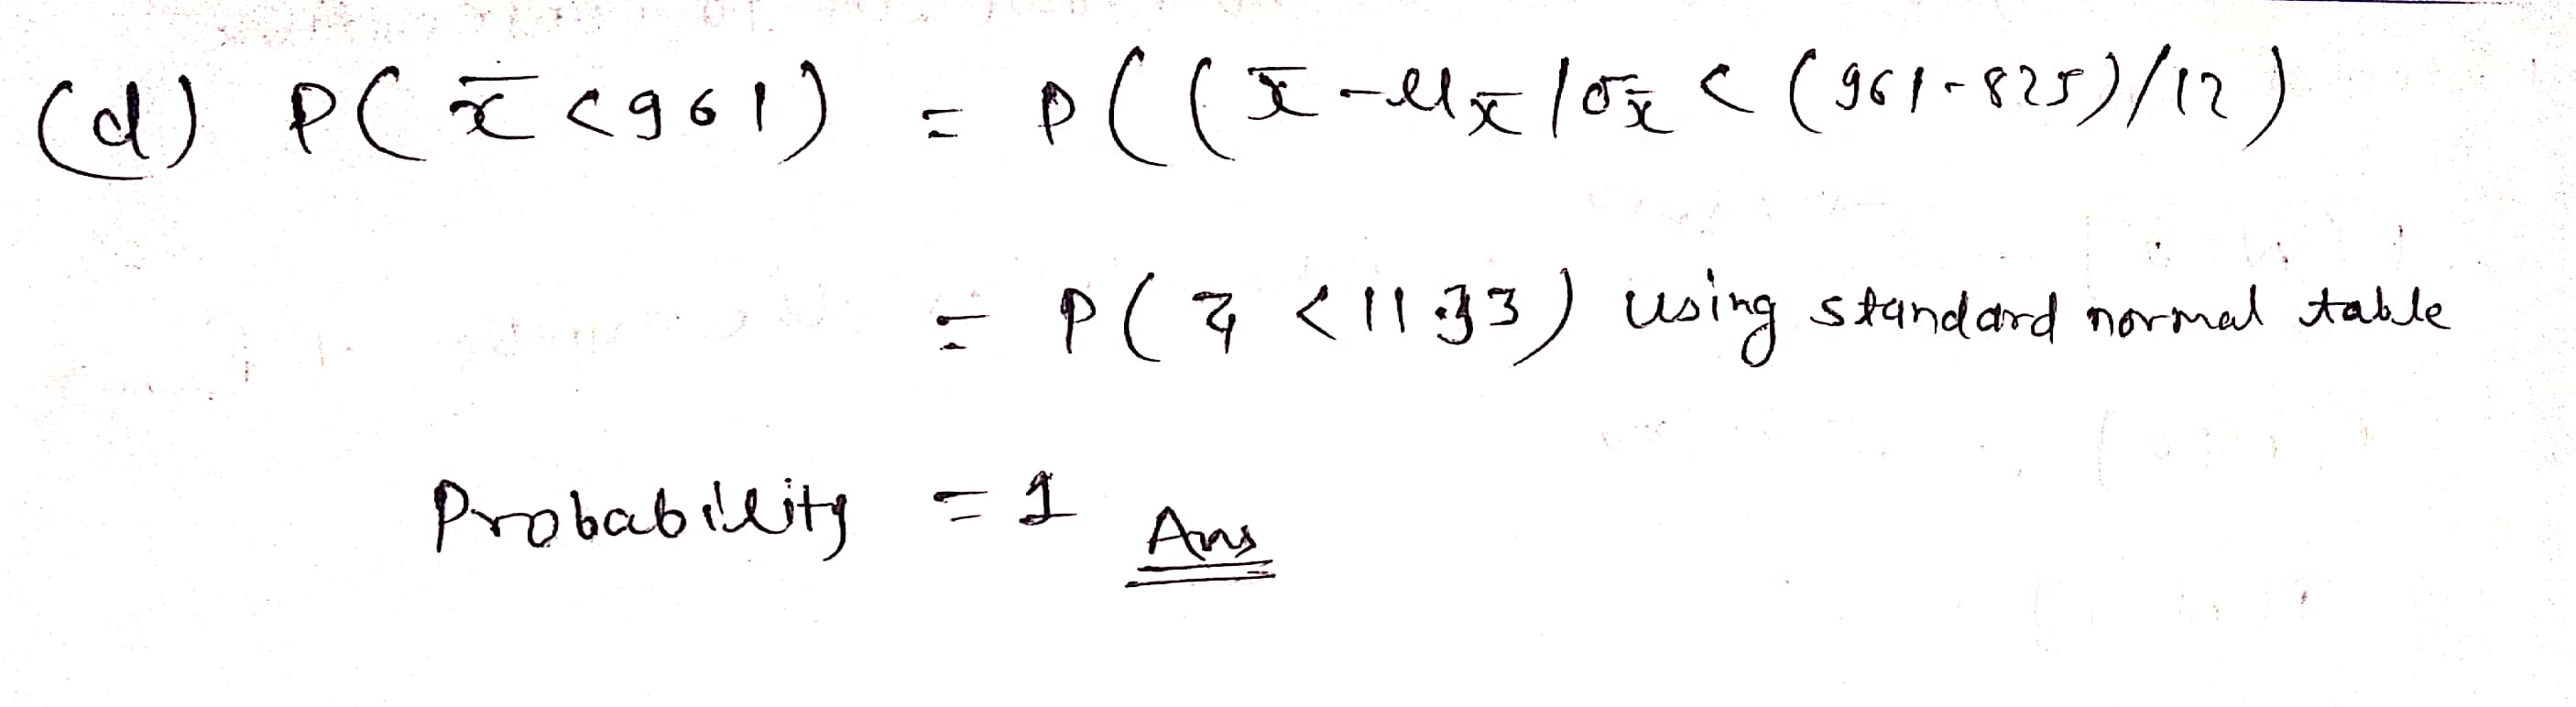 (d) P( x̄ < 961) = P( ( x̄ - μx̄ / σx̄ < (961-825)/12)
= P( z < 11.33) using standard normal table
Probability = 1 Ans